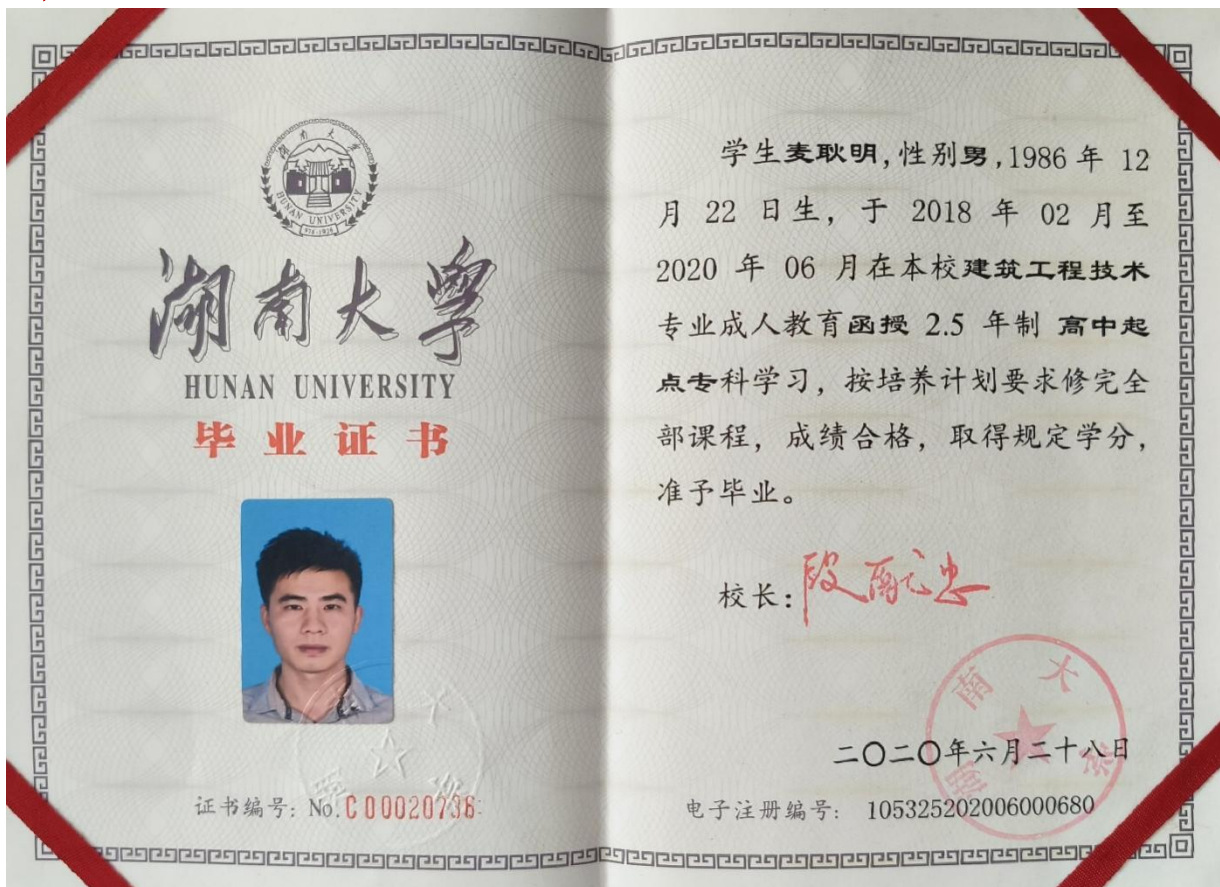 湖南大学
HUNAN UNIVERSITY
湖南大學
HUNAN UNIVERSITY
毕业证书
证书编号：No.C00020736
学生麦耿明,性别男,1986 年 12
月 22 日生，于 2018 年 02 月至
2020 年 06 月在本校建筑工程技术
专业成人教育函授 2.5 年制 高中起
点专科学习，按培养计划要求修完全
部课程，成绩合格，取得规定学分，
准予毕业。
校长：段献忠
湖南大学
二〇二〇年六月二十八日
电子注册编号：105325202006000680